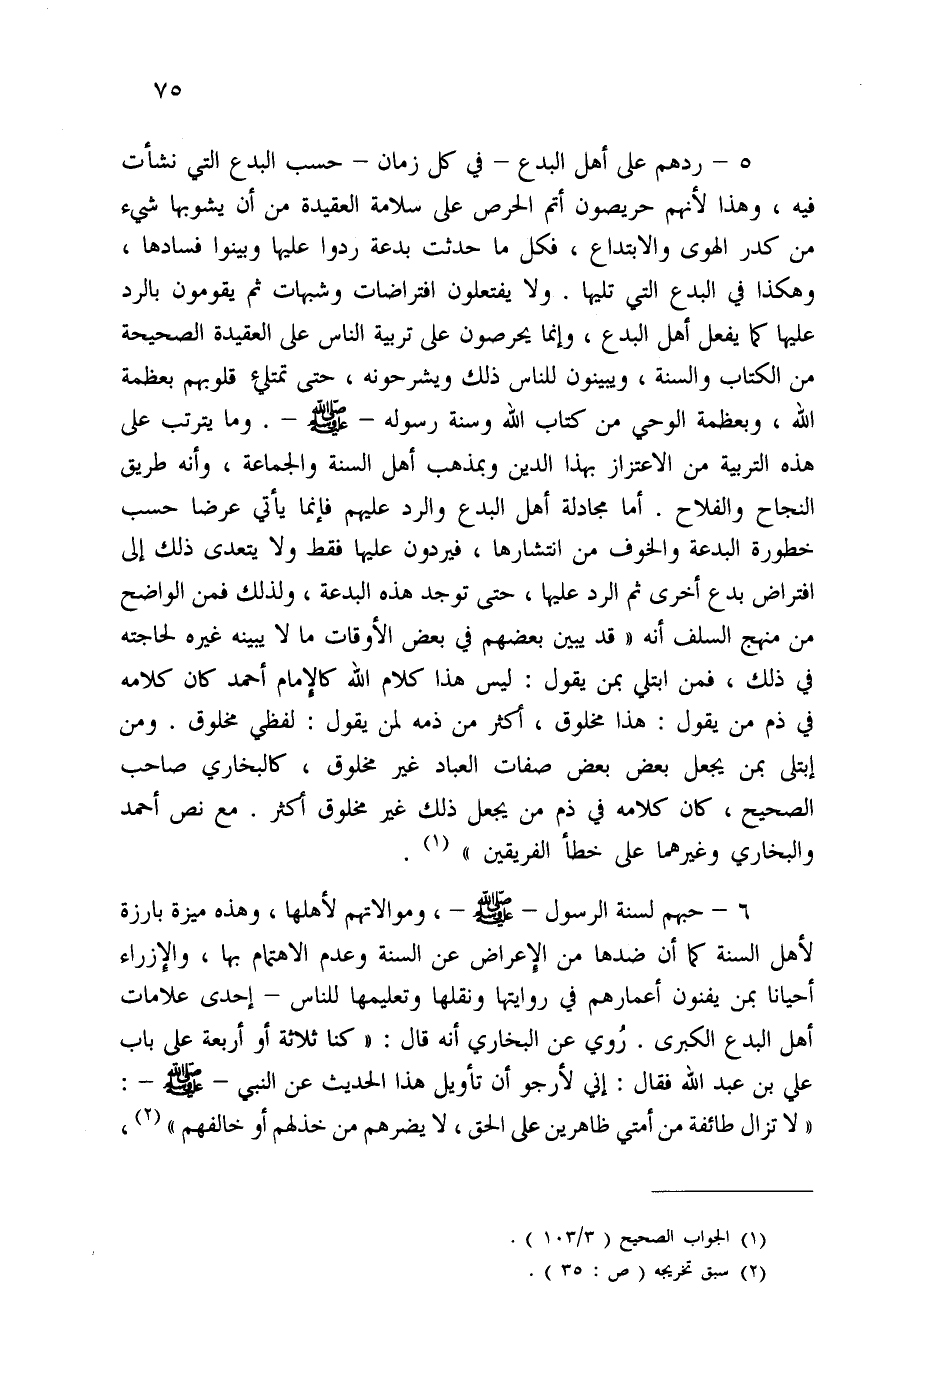 ٧٥
٥ – ردهم على أهل البدع – في كل زمان – حسب البدع التي نشأت
فيه ، وهذا لأنهم حريصون أتم الحرص على سلامة العقيدة من أن يشوبها شيء
من كدر الهوى والابتداع ، فكل ما حدثت بدعة ردوا عليها وبينوا فسادها ،
وهكذا في البدع التي تليها . ولا يفتعلون افتراضات وشبهات ثم يقومون بالرد
عليها كما يفعل أهل البدع ، وإنما يحرصون على تربية الناس على العقيدة الصحيحة
من الكتاب والسنة ، ويبينون للناس ذلك ويشرحونه ، حتى تمتلئ قلوبهم بعظمة
الله ، وبعظمة الوحي من كتاب الله وسنة رسوله – ﷺ – . وما يترتب على
هذه التربية من الاعتزاز بهذا الدين وبمذهب أهل السنة والجماعة ، وأنه طريق
النجاح والفلاح . أما مجادلة أهل البدع والرد عليهم فإنما يأتي عرضا حسب
خطورة البدعة والخوف من انتشارها ، فيردون عليها فقط ولا يتعدى ذلك إلى
افتراض بدع أخرى ثم الرد عليها ، حتى توجد هذه البدعة ، ولذلك فمن الواضح
من منهج السلف أنه « قد يبين بعضهم في بعض الأوقات ما لا يبينه غيره لحاجته
في ذلك ، فمن ابتلي بمن يقول : ليس هذا كلام الله كالإمام أحمد كان كلامه
في ذم من يقول : هذا مخلوق ، أكثر من ذمه لمن يقول : لفظي مخلوق . ومن
إبتلى بمن يجعل بعض بعض صفات العباد غير مخلوق ، كالبخاري صاحب
الصحيح ، كان كلامه في ذم من يجعل ذلك غير مخلوق أكثر . مع نص أحمد
والبخاري وغيرهما على خطأ الفريقين » (١) .
٦ – حبهم لسنة الرسول – ﷺ – ، وموالاتهم لأهلها ، وهذه ميزة بارزة
لأهل السنة كما أن ضدها من الإعراض عن السنة وعدم الاهتمام بها ، والإزراء
أحيانا بمن يفنون أعمارهم في روايتها ونقلها وتعليمها للناس – إحدى علامات
أهل البدع الكبرى . رُوي عن البخاري أنه قال : « كنا ثلاثة أو أربعة على باب
علي بن عبد الله فقال : إني لأرجو أن تأويل هذا الحديث عن النبي – ﷺ – :
« لا تزال طائفة من أمتي ظاهرين على الحق ، لا يضرهم من خذلهم أو خالفهم » (٢) ،
(١) الجواب الصحيح ( ١٠٣/٣ ) .
(٢) سبق تخريجه ( ص : ٣٥ ) .